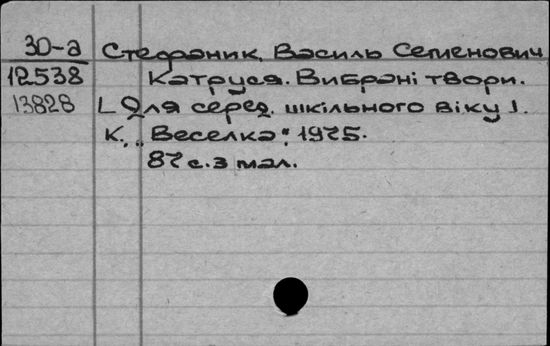 30-а Стефаник, Василь Семенович
12538 Катруся. Вибрані твори.
13828 [Для серед. шкільного віку].
К., „Веселка", 1975.
87 с. з мал.